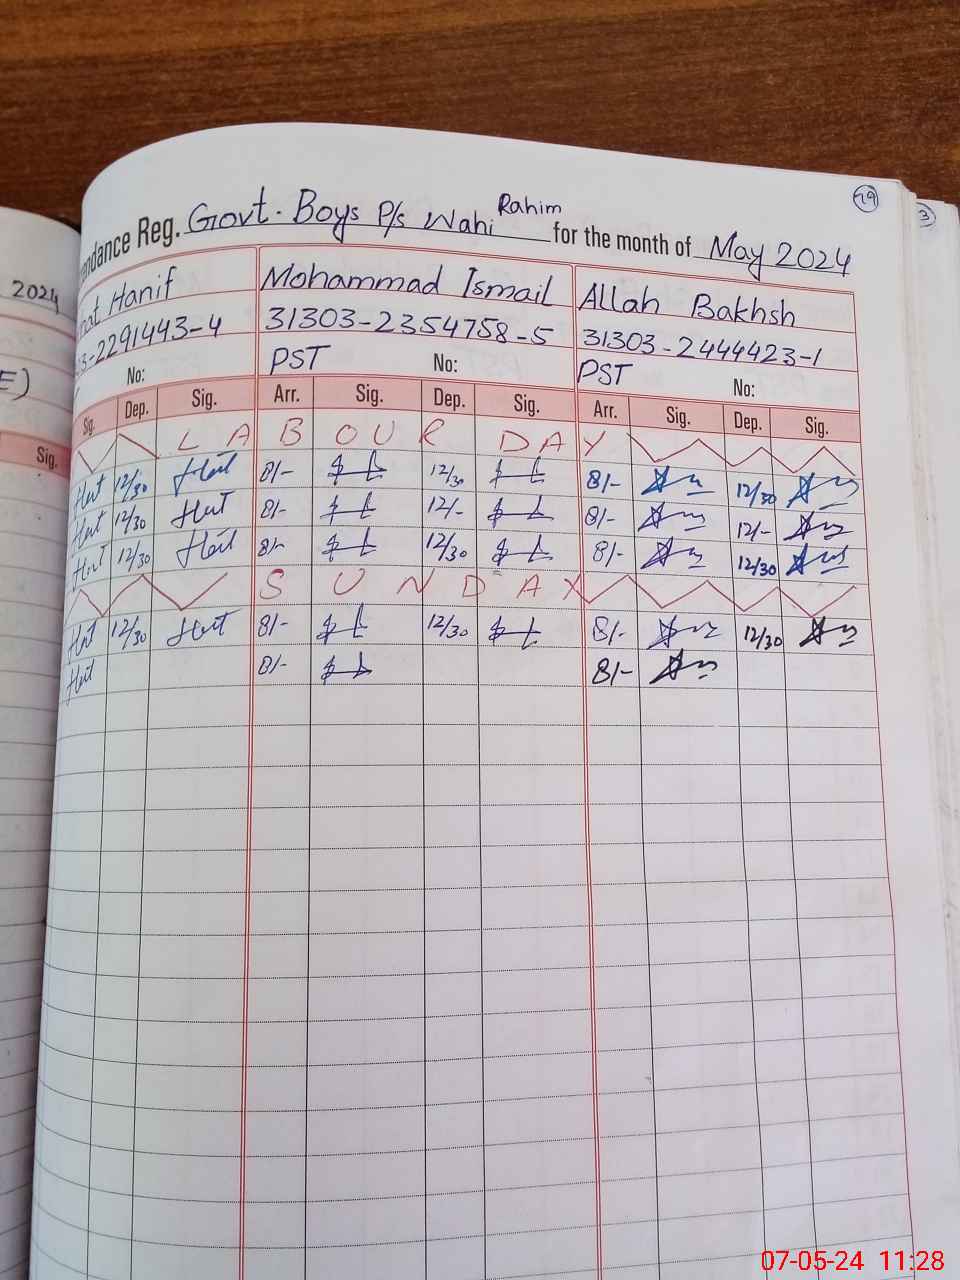 29
3
ndance Reg. Govt. Boys P/s Wahi Rahim for the month of May 2024
2024
Hanif Mohammad Ismail Allah Bakhsh
3-2291443-4 31303-2354758-5 31303-2444423-1
No: PST No: PST No:
E)
Sig. Dep. Sig. Arr. Sig. Dep. Sig. Arr. Sig. Dep. Sig.
Sig.
LABOUR DAY
12/30 8/- 12/30 8/- 12/30
12/30 8/- 12/- 8/- 12/-
12/30 8/- 12/30 8/- 12/30
SUNDAY
12/30 8/- 12/30 8/- 12/30
8/- 8/-
07-05-24 11:28